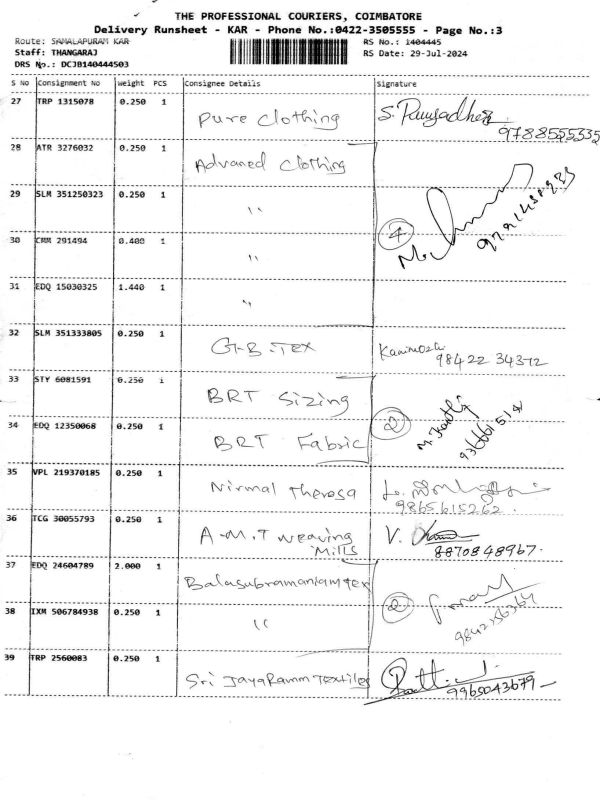 THE PROFESSIONAL COURIERS, COIMBATORE
Delivery Runsheet - KAR - Phone No.:0422-3505555 - Page No.:3
Route: SAMALAPURAM KAR RS No.: 1404445
Staff: THANGARAJ RS Date: 29-Jul-2024
DRS No.: DCJB140444503
S No Consignment No weight PCS Consignee Details Signature
27 TRP 1315078 0.250 1 Pure Clothing
9788555335
28 ATR 3276032 0.250 1 Advaned Clothing
29 SLM 351250323 0.250 1 "
4
30 CMM 291494 0.400 1 "
31 EDQ 15030325 1.440 1 "
32 SLM 351333805 0.250 1 G.B.Tex
98422 34372
33 STY 6081591 0.250 1 BRT Sizing
2
34 EDQ 12350068 0.250 1 BRT Fabric
35 VPL 219370185 0.250 1 Nirmal Theresa
9865615262
36 TCG 30055793 0.250 1 A.M.T weaving V.
Mills 8870848967.
37 EDQ 24604789 2.000 1 Balasubramaniam Tex
2
38 IXM 506784938 0.250 1 "
39 TRP 2560083 0.250 1 Sri JayaRamm Textiles
9965043679